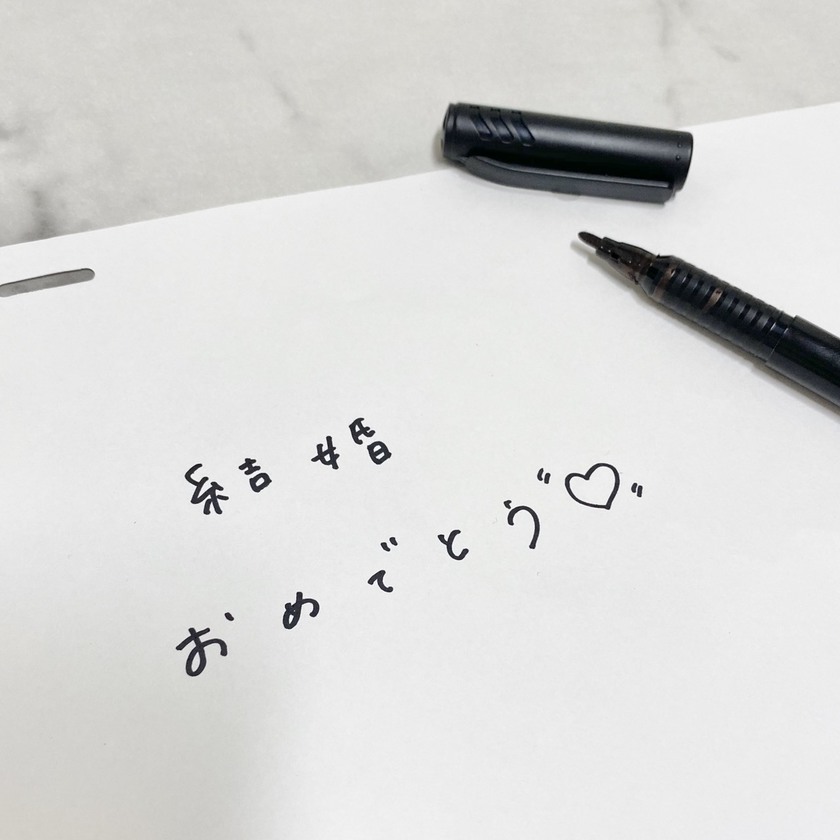 結婚
おめでとう"♡"